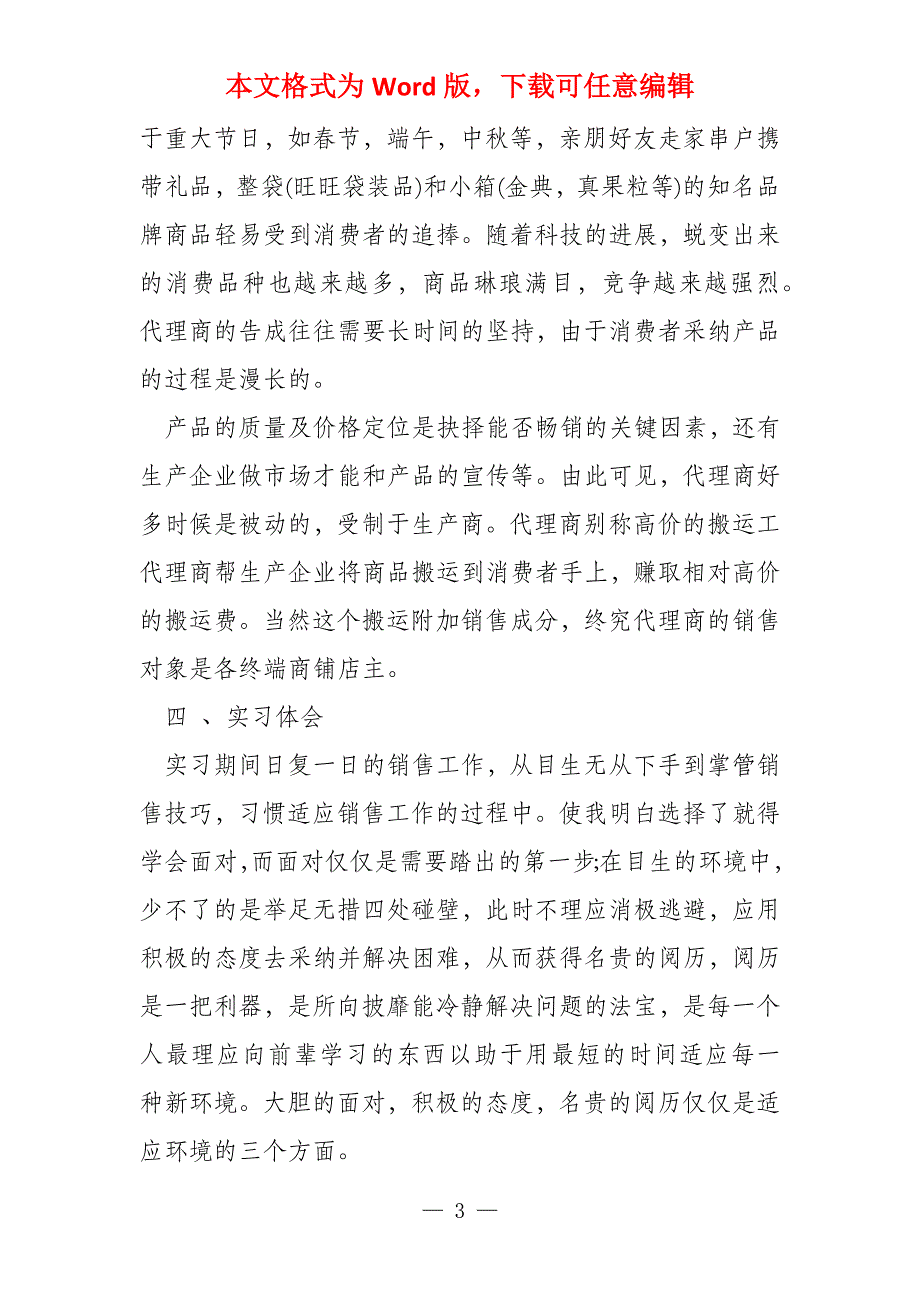 本文格式为 Word 版，下载可任意编辑
于重大节日，如春节，端午，中秋等，亲朋好友走家串户携
带礼品，整袋(旺旺袋装品)和小箱(金典，真果粒等)的知名品
牌商品轻易受到消费者的追捧。随着科技的进展，蜕变出来
的消费品种也越来越多，商品琳琅满目，竞争越来越强烈。
代理商的告成往往需要长时间的坚持，由于消费者采纳产品
的过程是漫长的。
产品的质量及价格定位是抉择能否畅销的关键因素，还有
生产企业做市场才能和产品的宣传等。由此可见，代理商好
多时候是被动的，受制于生产商。代理商别称高价的搬运工
代理商帮生产企业将商品搬运到消费者手上，赚取相对高价
的搬运费。当然这个搬运附加销售成分，终究代理商的销售
对象是各终端商铺店主。
四 、实习体会
实习期间日复一日的销售工作，从目生无从下手到掌管销
售技巧，习惯适应销售工作的过程中。使我明白选择了就得
学会面对,而面对仅仅是需要踏出的第一步;在目生的环境中，
少不了的是举足无措四处碰壁，此时不理应消极逃避，应用
积极的态度去采纳并解决困难，从而获得名贵的阅历，阅历
是一把利器，是所向披靡能冷静解决问题的法宝，是每一个
人最理应向前辈学习的东西以助于用最短的时间适应每一
种新环境。大胆的面对，积极的态度，名贵的阅历仅仅是适
应环境的三个方面。
— 3 —